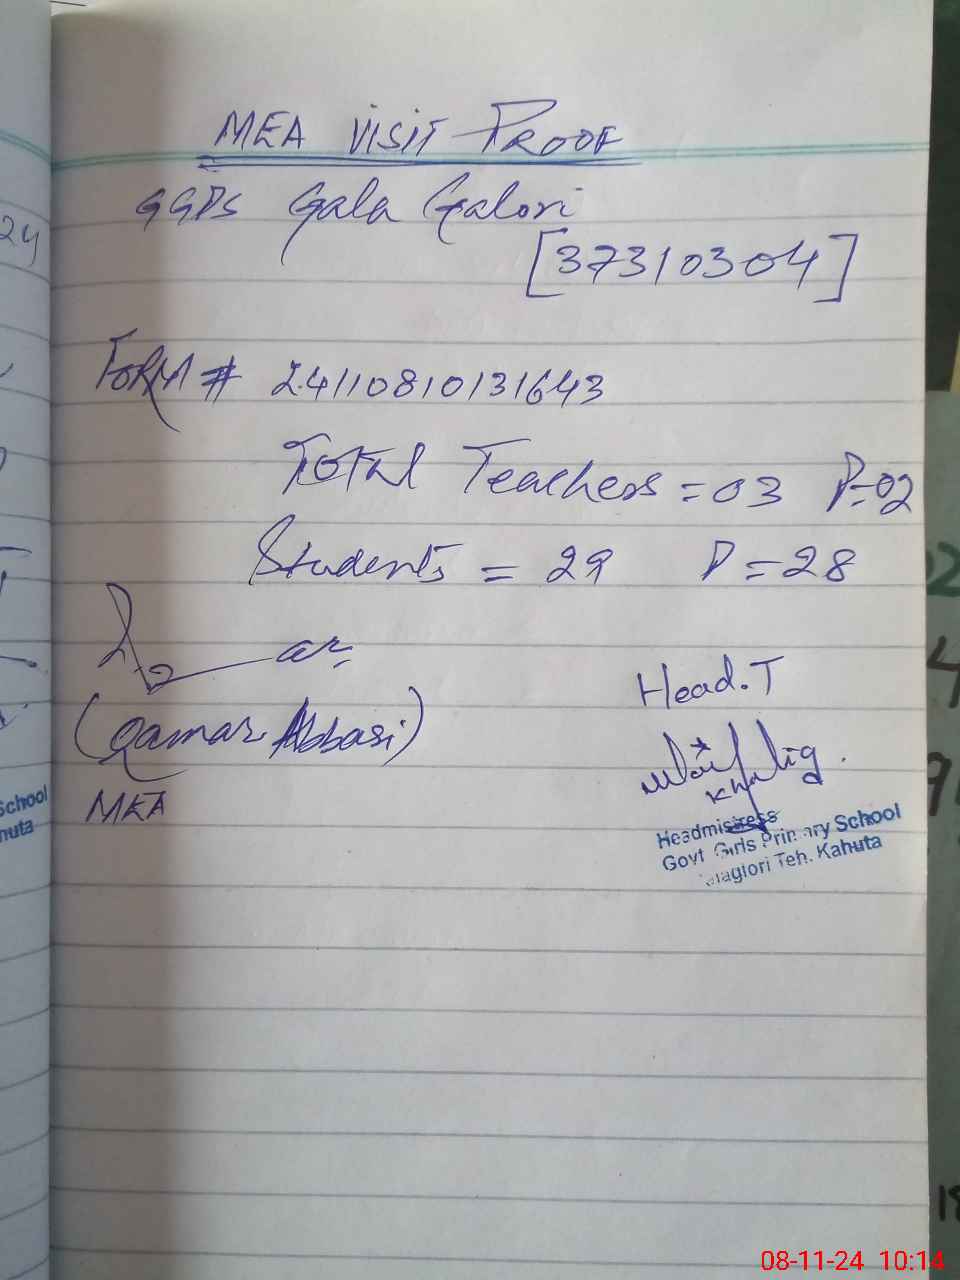 MEA VISIT PROOF
GGPS Gala Galori
[37310304]
FORM # 24110810131643
Total Teachers = 03 P=02
Students = 29 P = 28
(Qamar Abbasi)
MEA
Head.T
Headmistress
Govt Girls Primary School
Teh. Kahuta
School
huta
24
08-11-24 10:14